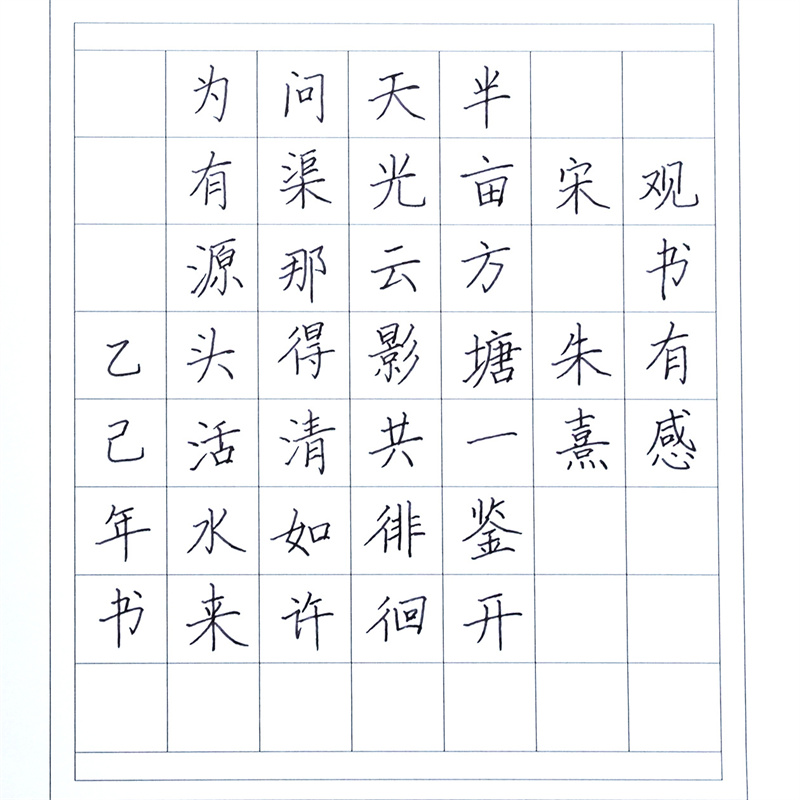 观书有感
宋 朱熹
半亩方塘一鉴开
天光云影共徘徊
问渠那得清如许
为有源头活水来
乙己年书